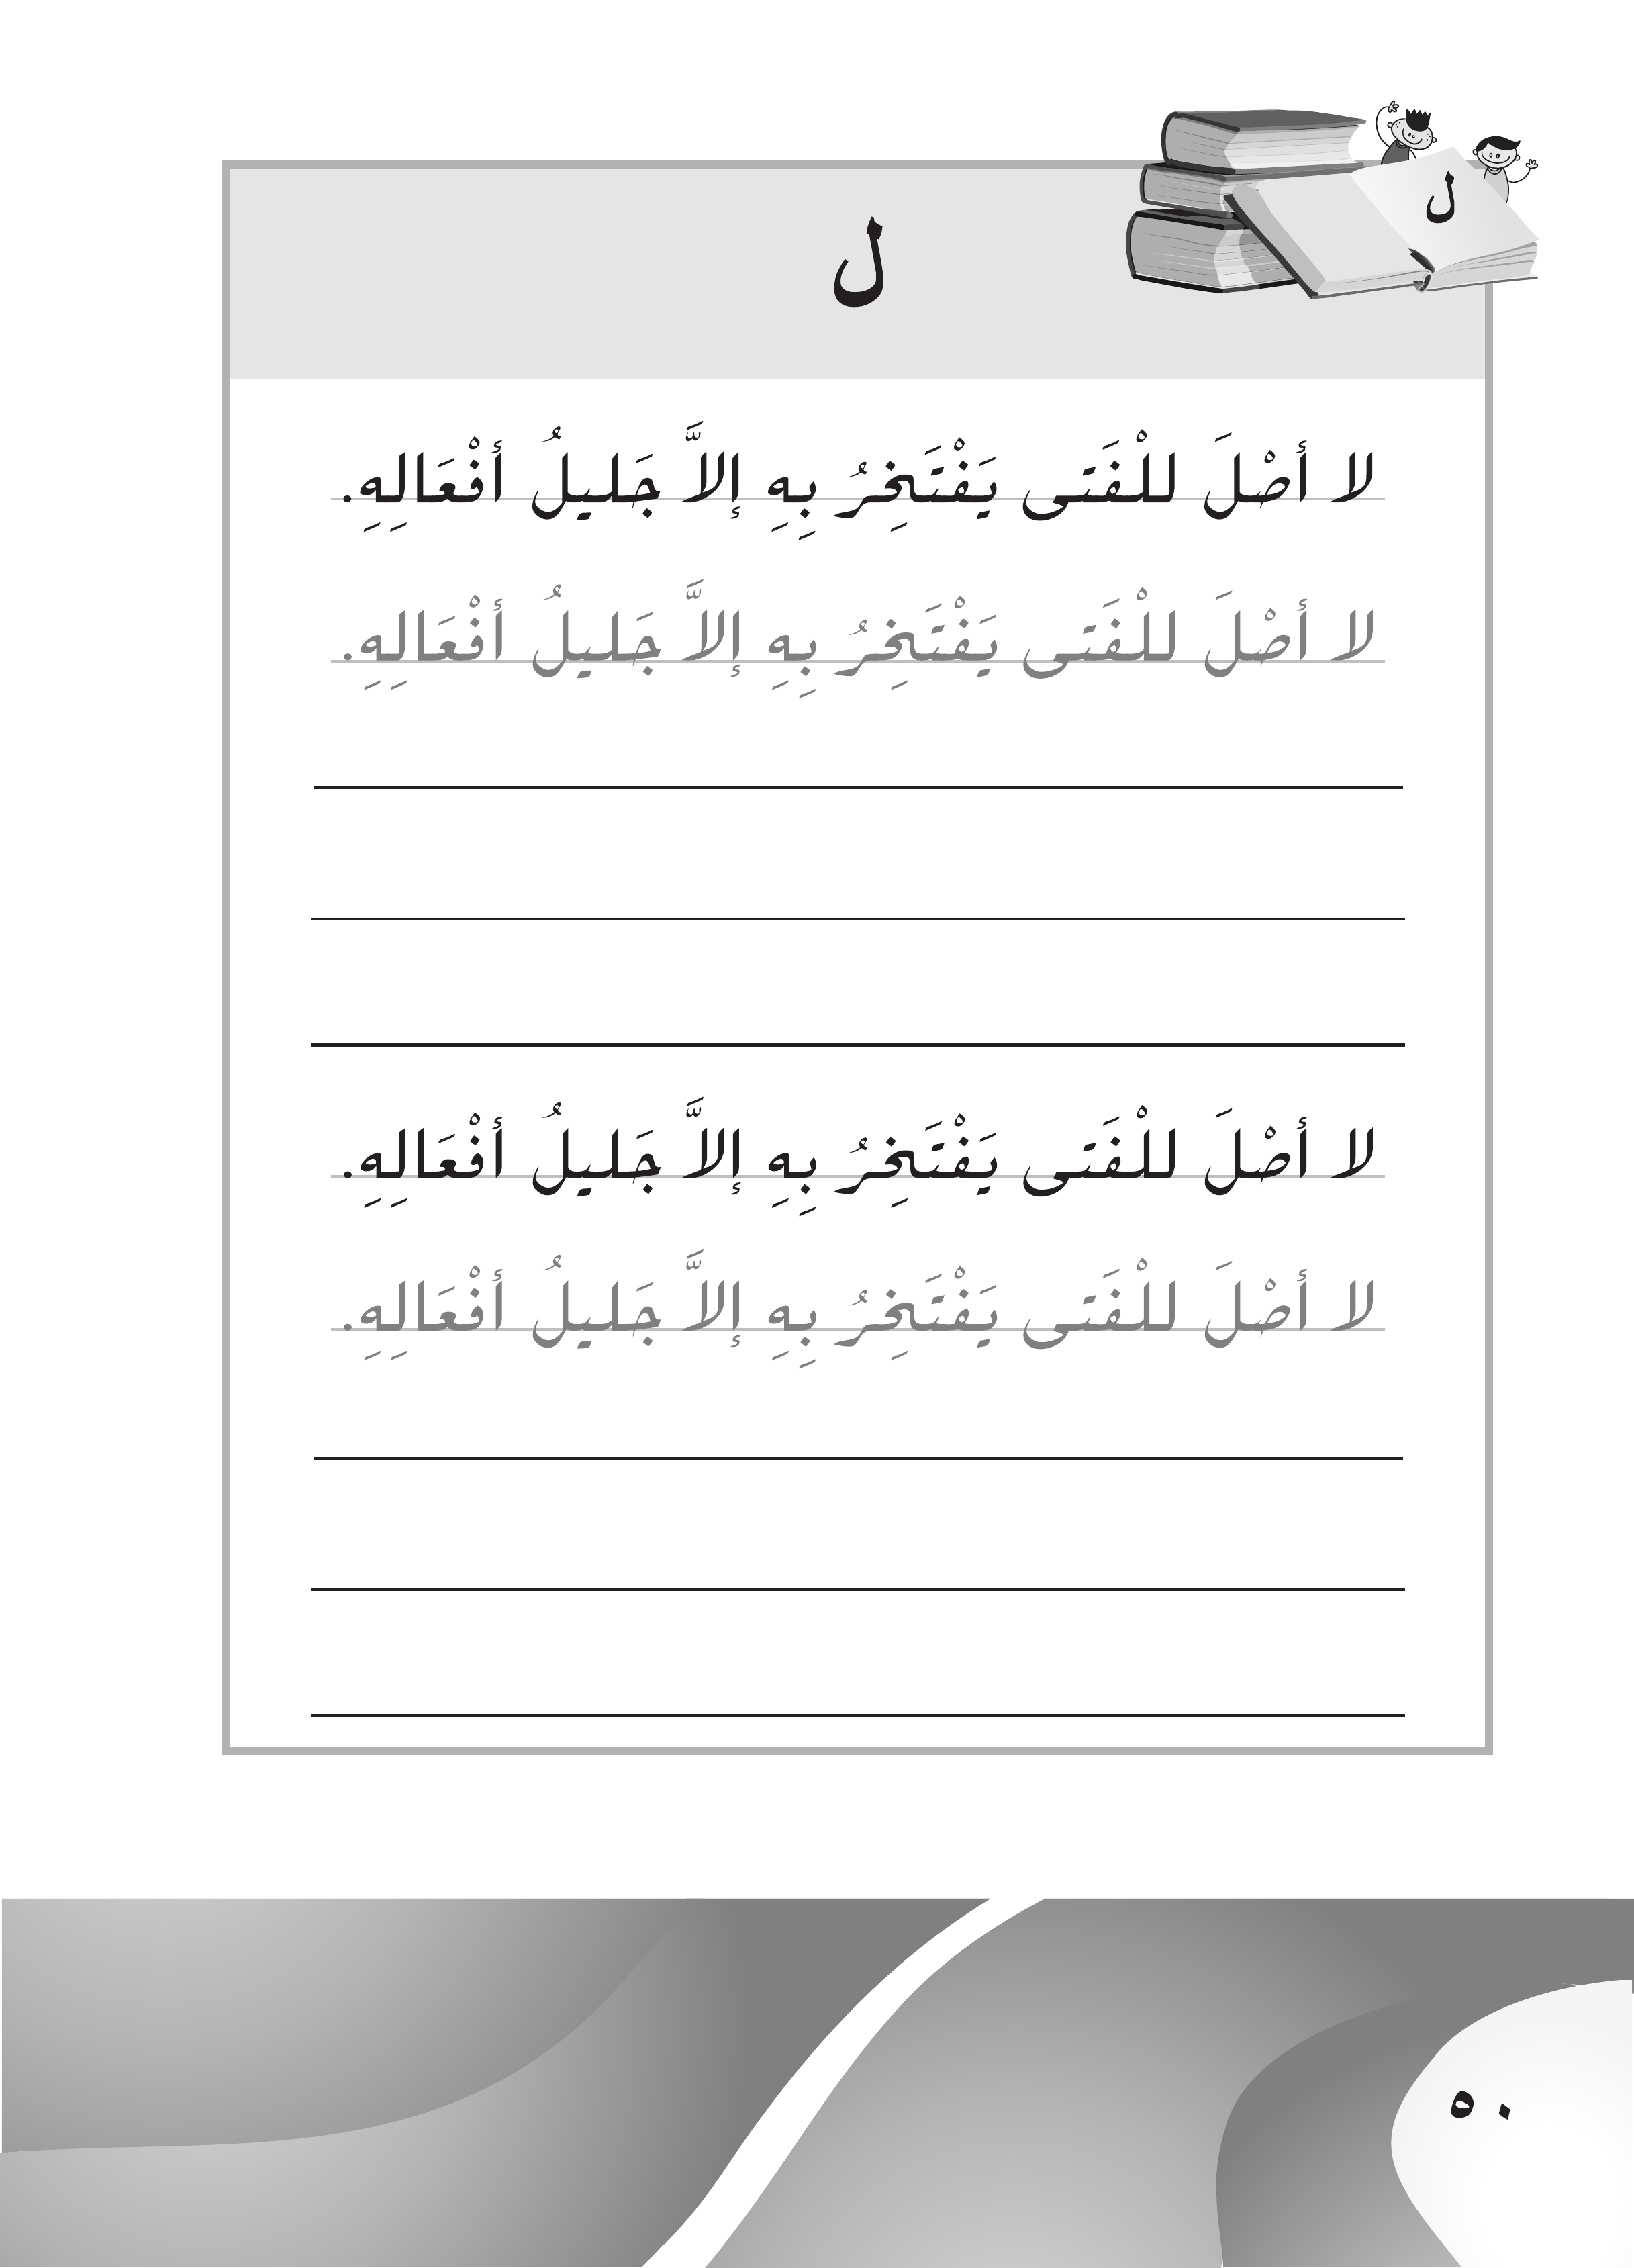 ل
ل
لا أصْلَ للْفَتى يَفْتَخِرُ بِهِ إلاَّ جَليلُ أفْعَالِهِ.
لا أصْلَ للْفَتى يَفْتَخِرُ بِهِ إلاَّ جَليلُ أفْعَالِهِ.
لا أصْلَ للْفَتى يَفْتَخِرُ بِهِ إلاَّ جَليلُ أفْعَالِهِ.
لا أصْلَ للْفَتى يَفْتَخِرُ بِهِ إلاَّ جَليلُ أفْعَالِهِ.
٥٠